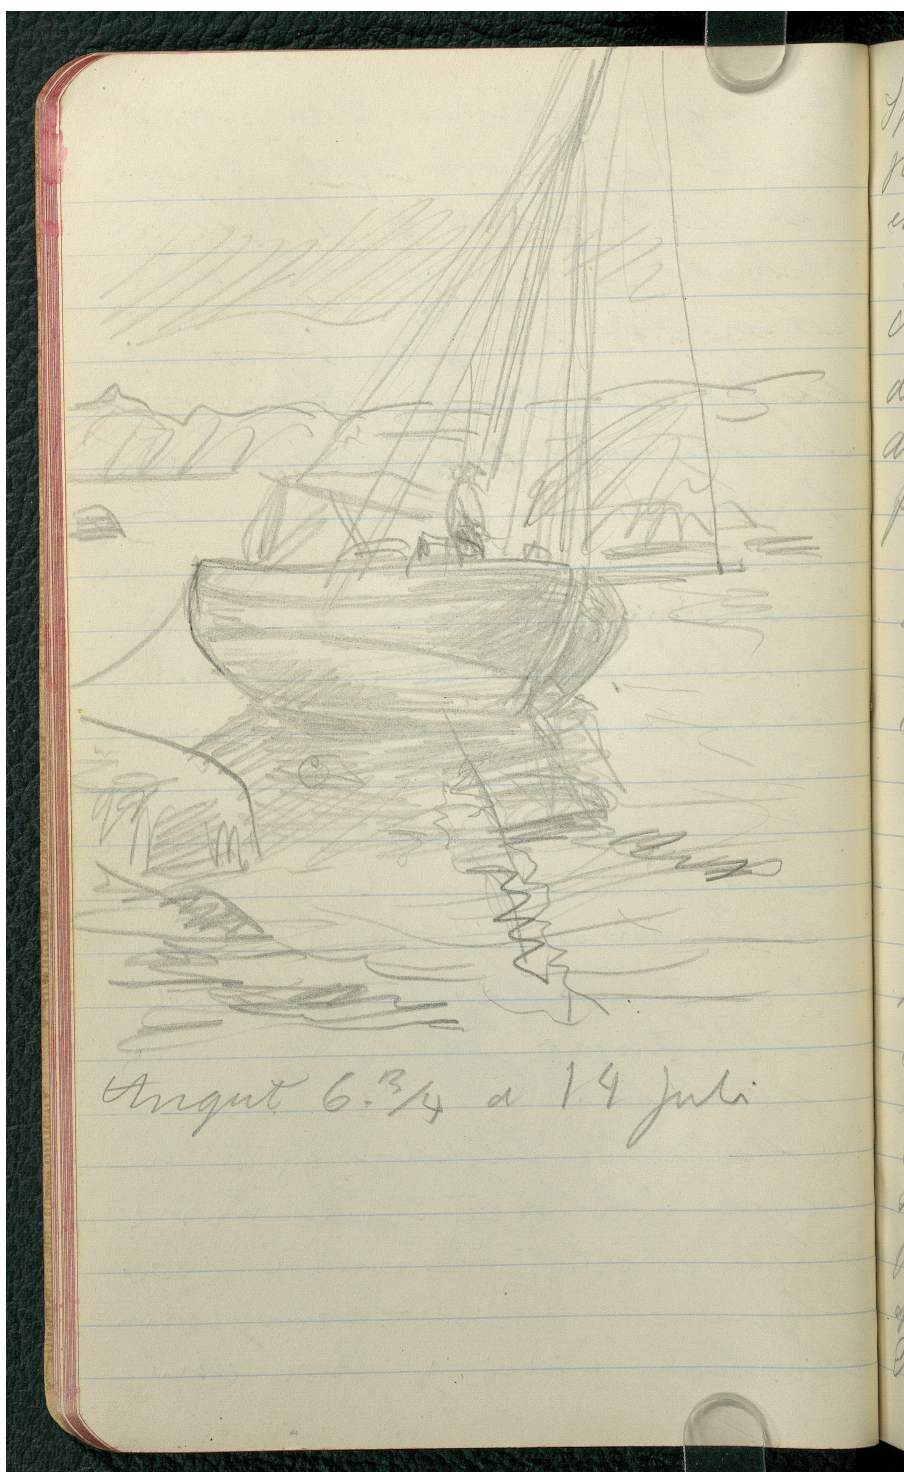 Angut 6.3/4 d 14 Juli